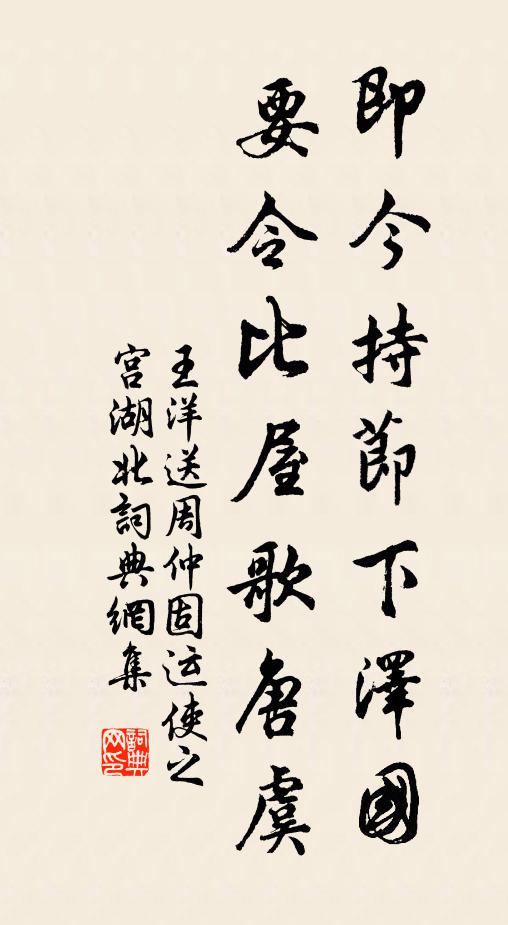 即今持節下澤國
要令比屋歌唐虞
王洋送周仲固运使之
宫湖北詞典網集
詞典网印